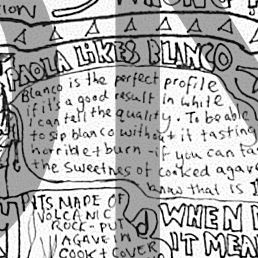 PAOLA LIKES BLANCO
Blanco is the perfect profile
if it's a good result in white
I can tell the quality. To be able
to sip blanco without it tasting
horrible + burn - if you can
the sweetness of cooked
know that is
ITS MADE OF
VOLCANIC
ROCK - PUT
AGAVE IN
COOK + COVER
WHEN
IT